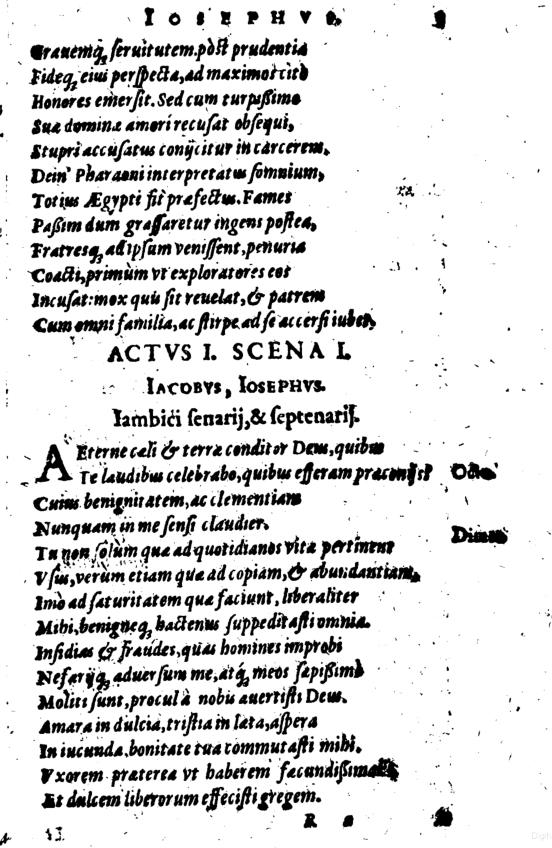 IOSEPHVS.
Grauemq́; ſeruitutem.pòſt prudentia
Fideq́; eius perſpecta,ad maximos citò
Honores emerſit. Sed cum turpißimo
Suæ dominæ amori recuſat obſequi,
Stupri accuſatus conijcitur in carcerem,
Dein' Pharaoni interpretatus ſomnium,
Totius Ægypti fit præfectus. Fames
Paßim dum graſſaretur ingens poſtea,
Fratresq́; ad ipſum veniſſent, penuria
Coacti,primùm vt exploratores eos
Incuſat:mox quis ſit reuelat,& patrem
Cum omni familia,ac ſtirpe ad ſe accerſi iubet.
ACTVS I. SCENA I.
IACOBVS, IOSEPHVS.
Iambici ſenarij,& ſeptenarij.
AEterne cæli & terræ conditor Deus,quibus
Te laudibus celebrabo,quibus efferam præconijs?
Cuius benignitatem,ac clementiam
Nunquam in me ſenſi claudier.
Tu non ſolum quæ ad quotidianos vitæ pertinent
Vſus,verum etiam quæ ad copiam,& abundantiam,
Imò ad ſaturitatem quæ faciunt, liberaliter
Mihi,benigneq́; hactenus ſuppeditaſti omnia.
Inſidias & fraudes,quas homines improbi
Nefarijq́; aduerſum me,atq́; meos ſæpißimè
Moliti ſunt,procul à nobis auertiſti Deus.
Amara in dulcia,triſtia in læta,aſpera
In iucunda,bonitate tua commutaſti mihi.
Vxorem præterea vt haberem fæcundißimam
Et dulcem liberorum effeciſti gregem.